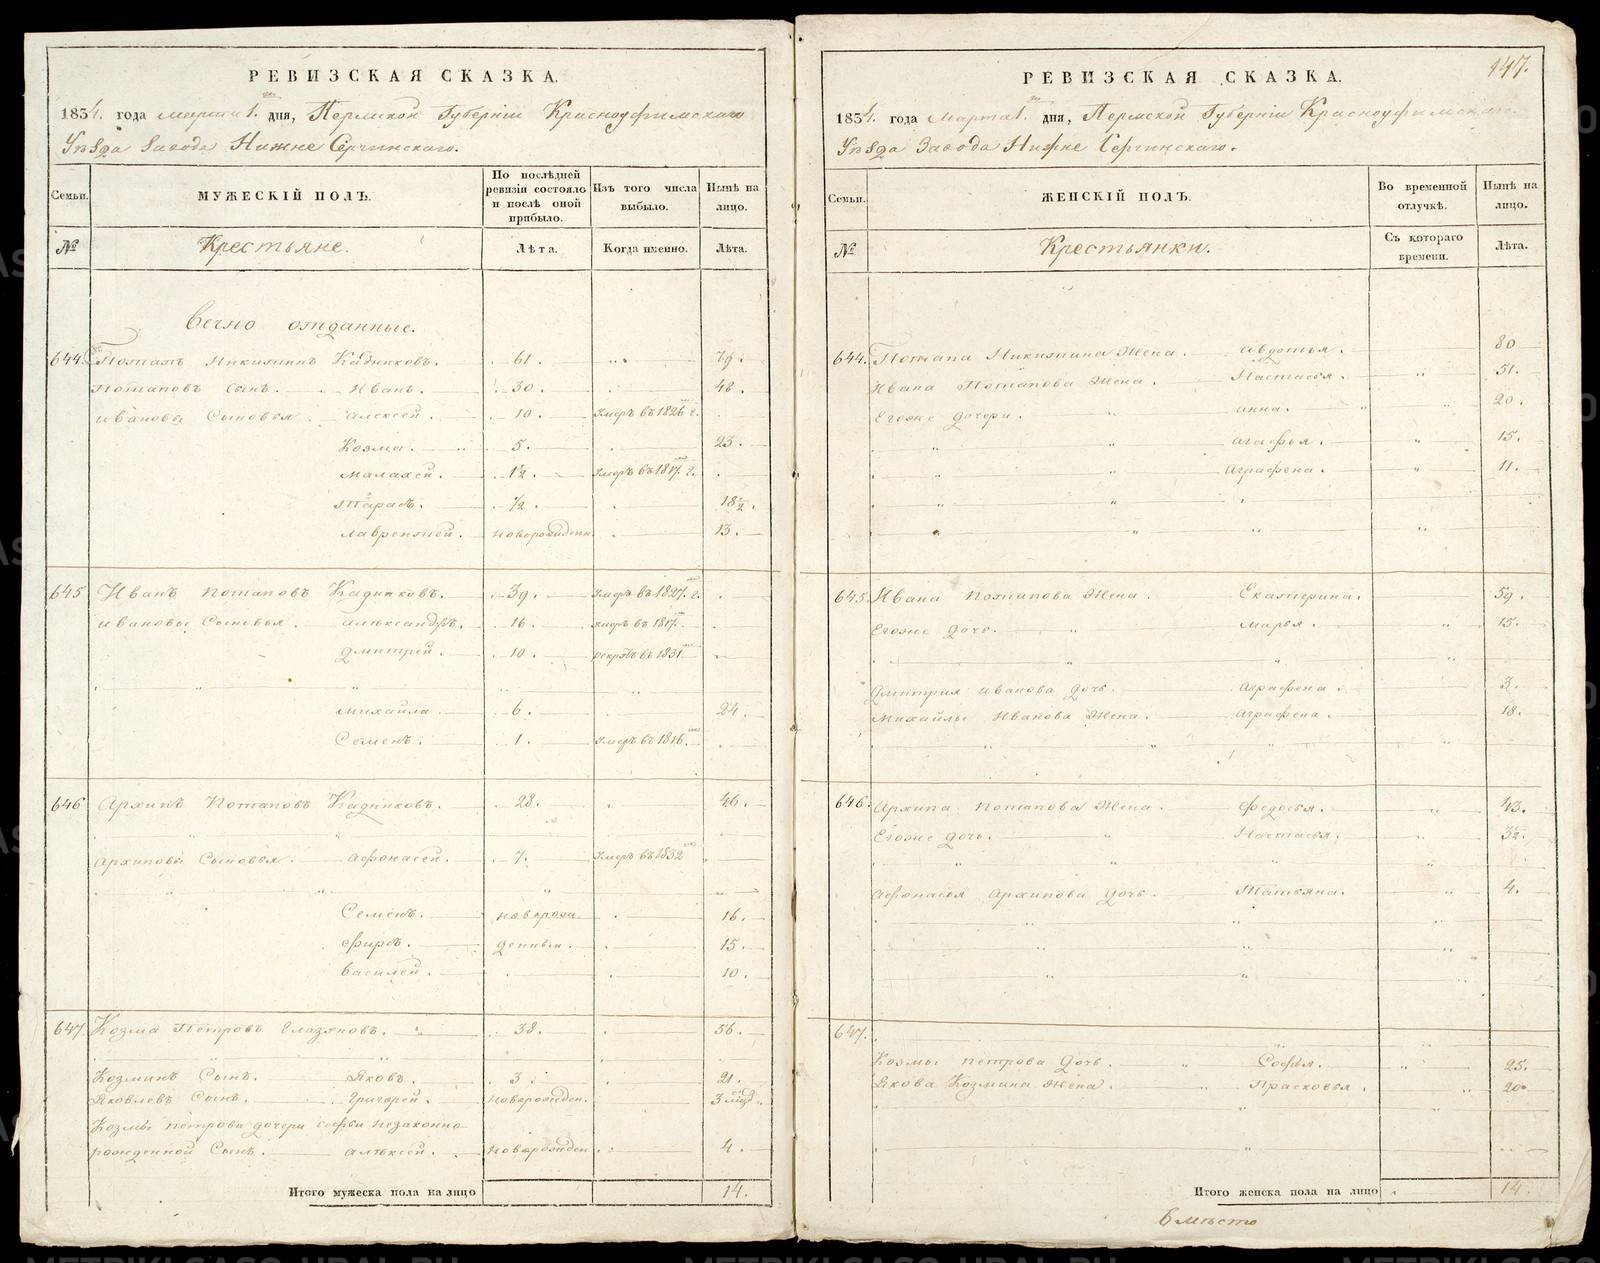 РЕВИЗСКАЯ СКАЗКА.
1834. года марта 1. дня, Пермской Губернiи Красноуфимскаго
Уѣзда Завода Нижне Сергинскаго.
Семьи.
МУЖЕСКIЙ ПОЛЪ.
По послѣдней ревизiи состояло и послѣ оной прибыло.
Изъ того числа выбыло.
Нынѣ на лицо.
№
Крестьяне.
Лѣта.
Когда именно.
Лѣта.
Вечно отданные.
644. Потапъ Никитинъ Кадниковъ. 61. 79.
Потаповъ Сынъ. Иванъ. 30. 48.
Ивановы Сыновья. Алексей. 10. Умеръ въ 1826 г.
Козма. 5. 23.
Малахей. 1½. Умеръ въ 1817. г.
Тарасъ. ½. 18½.
Лаврентей. новорожденн. 13.
645 Иванъ Потаповъ Кадниковъ. 39. Умеръ въ 1827. г.
Ивановы Сыновья. Александръ. 16. умеръ въ 1817.
Дмитрей. 10. рекрутъ въ 1831
Михайла 6. 24.
Семенъ. 1. Умеръ въ 1816.
646 Архипъ Потаповъ Кадниковъ. 28. 46.
Архиповы Сыновья. Афонасей. 7. Умеръ въ 1832
Семенъ. новорож 16.
Фирсъ. денныи. 15.
Василей. 10.
647. Козма Петровъ Глазяновъ. 38. 56.
Козминъ Сынъ. Яковъ. 3. 21.
Яковлевъ Сынъ. Григорей. новорожден. 3
Козмы Петрова дочери Софьи незаконно-
рожденной Сынъ. Алексей. новорожден 4.
Итого мужеска пола на лицо 14.
РЕВИЗСКАЯ СКАЗКА.
147.
1834. года Марта 1. дня, Пермской Губернiи Красноуфимскаго
Уѣзда Завода Нижне Сергинскаго.
Семьи.
ЖЕНСКIЙ ПОЛЪ.
Во временной отлучкѣ.
Нынѣ на лицо.
№
Крестьянки.
Съ котораго времени.
Лѣта.
644. Потапа Никитина Жена. Авдотья. 80
Ивана Потапова Жена. Настасья. 51.
Егоже дочери. Анна. 20.
Агафья. 15.
Аграфена. 11.
645. Ивана Потапова Жена. Екатерина. 59.
Егоже дочь. Марья. 15.
Дмитрия Иванова дочь. Аграфена. 3.
Михайлы Иванова Жена. Аграфена. 18.
646. Архипа Потапова Жена. Федосья. 43.
Егоже дочь. Настасья.
Афонасья Архипова дочь. Татьяна. 4.
647.
Козмы Петрова дочь. Софья. 25.
Якова Козмина Жена. Прасковья. 20
Итого женска пола на лицо 14.
Вместо